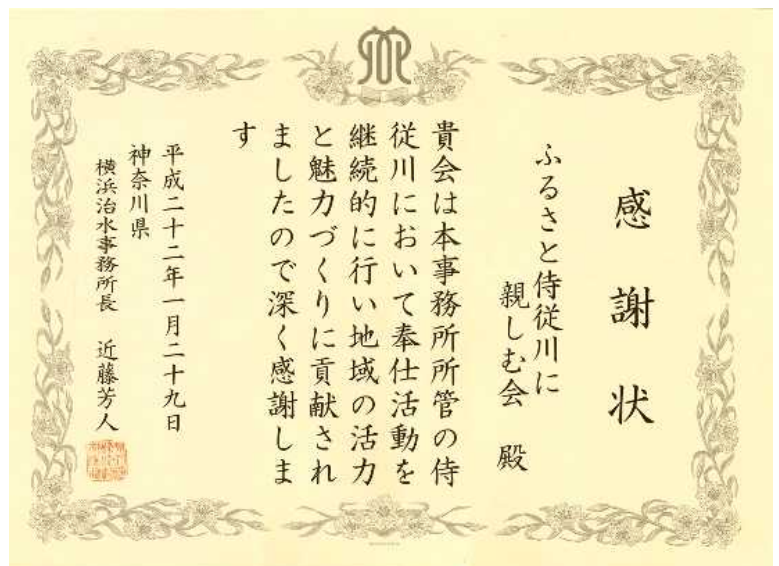 感謝状
ふるさと侍従川に
親しむ会 殿
貴会は本事務所所管の侍
従川において奉仕活動を
継続的に行い地域の活力
と魅力づくりに貢献され
ましたので深く感謝しま
す
平成二十二年一月二十九日
神奈川県
横浜治水事務所長 近藤芳人